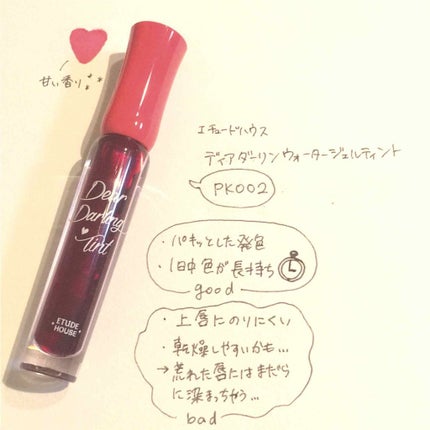 甘い香り
Dear
Darling
Tint
ETUDE
HOUSE
エチュードハウス
ディアダーリンウォータージェルティント
PK002
・パキッとした発色
・1日中色が長持ち
good
・上唇にのりにくい
・乾燥しやすいかも...
→荒れた唇にはまだら
に染まっちゃう...
bad